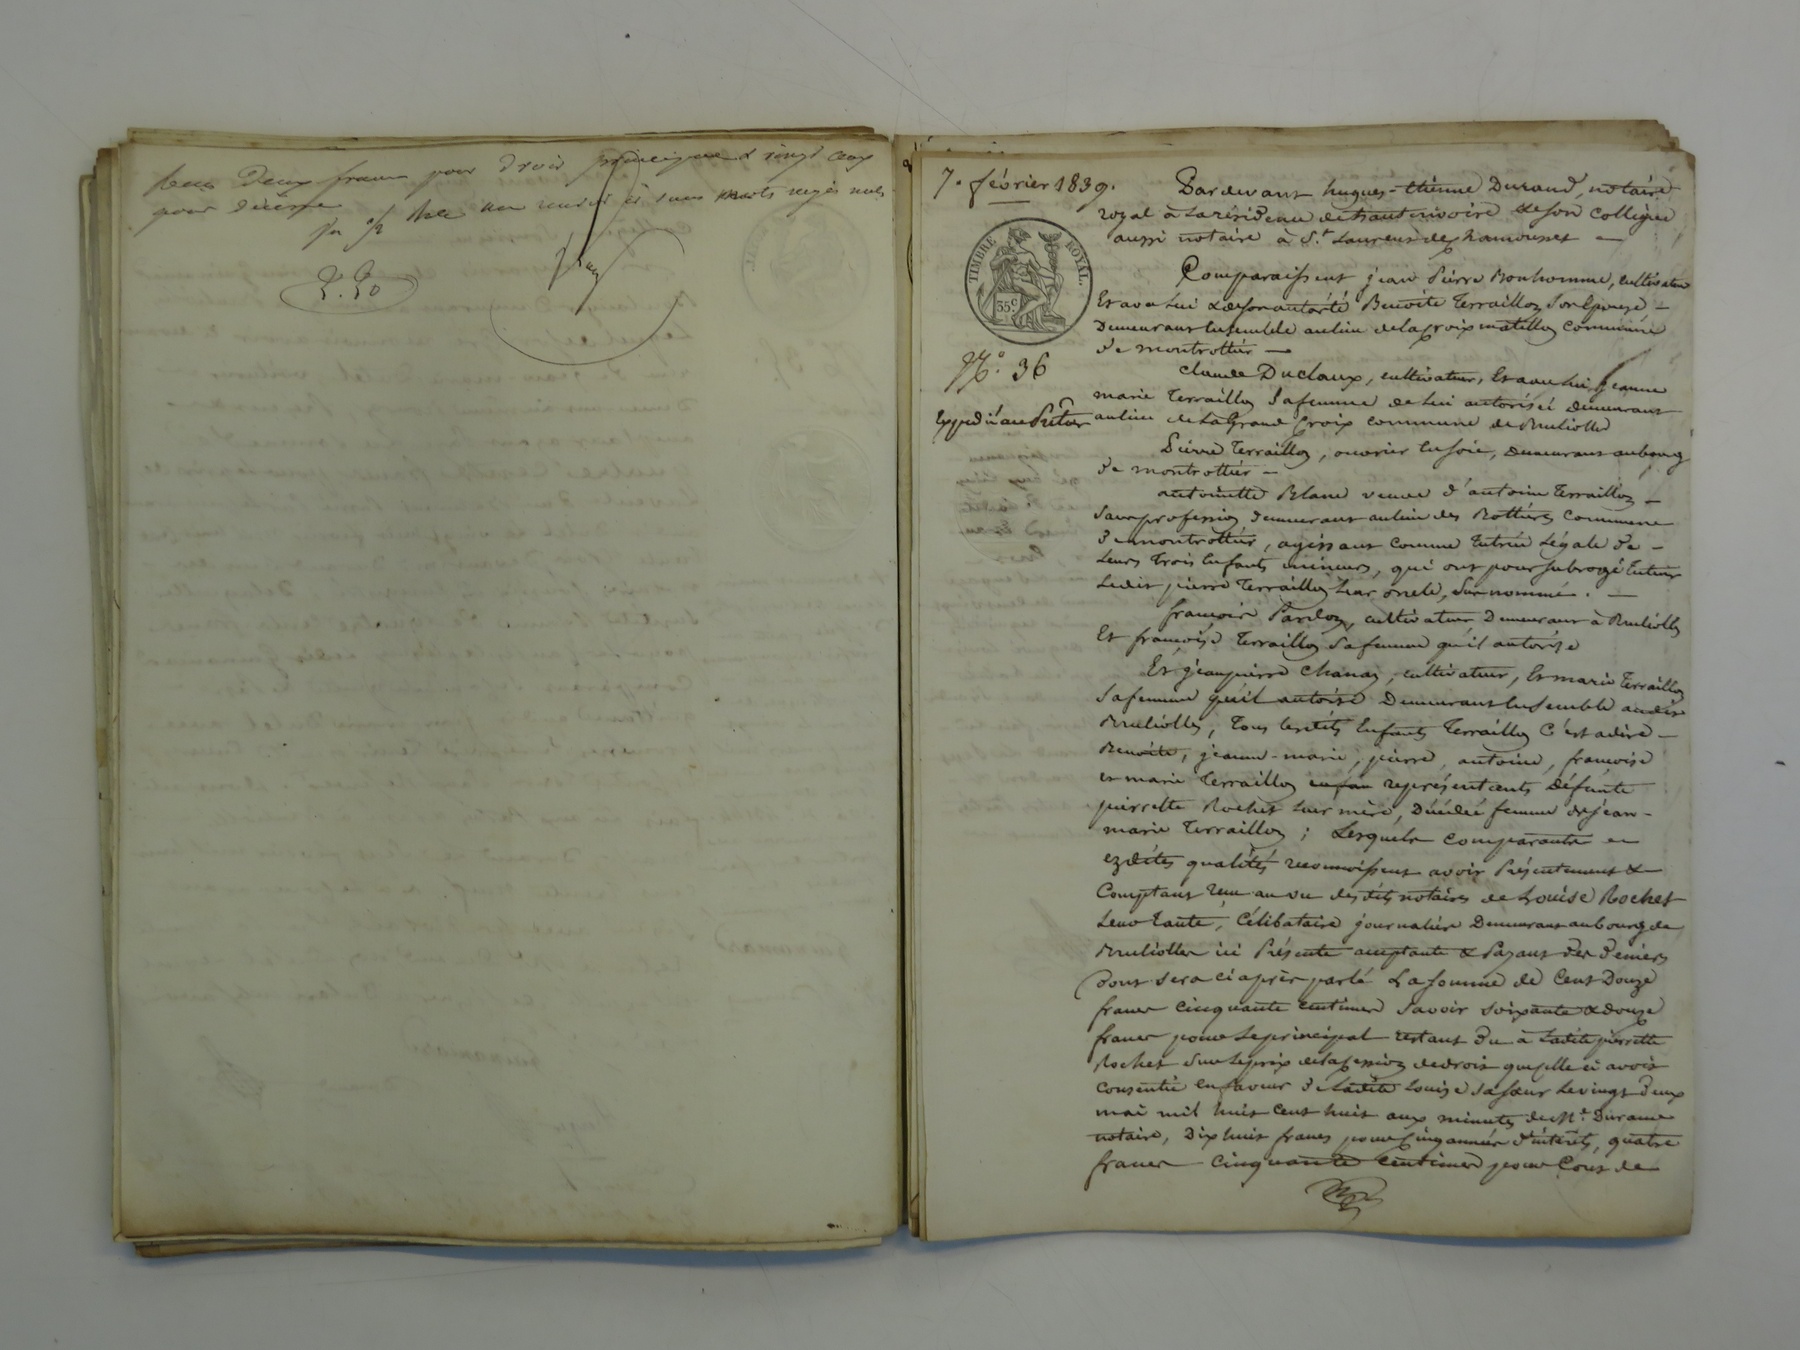 deux francs pour droit principal & vingt cinq
pour décime
2.20
7. février 1839.
TIMBRE ROYAL.
35.c
N.o 36
Pardevant hugues-étienne Durand, notaire
royal à la résidence de hauterivoire & son collègue
aussi notaire à S.t Laurent de Chamousset —
Comparaissent jean Pierre Bonhomme, cultivateur
Et avec lui & de son autorité Benoite Terraillon son Epouse —
Demeurant Ensemble au lieu de la Croix matillon Commune
de montrottier —
Claude Duclaux, cultivateur, Et avec lui jeanne
marie Terraillon Sa femme de lui autorisée demeurant
au lieu de La Grand Croix commune de Brullioles
Pierre Terraillon, ouvrier en soie, demeurant au bourg
de montrottier —
antoinette Blanc veuve d'antoine Terraillon —
Sans profession demeurant au lieu des Rottières Commune
de montrottier, agissant comme Tutrice Légale de —
Leurs trois Enfants mineurs, qui ont pour subrogé Tuteur
Ledit pierre Terraillon Leur oncle, Sus nommé. —
françois Pardon, cultivateur Demeurant à Brullioles
Et françoise Terraillon Sa femme qu'il autorise
Et jean pierre Chanay, cultivateur, Et marie Terraillon
Sa femme qu'il autorise Demeurant Ensemble audit
Brullioles, Tous lesdits Enfants Terraillon C'est adire —
Benoite, jeanne-marie, pierre, antoine, françoise
et marie Terraillon représentants défunte
pierrette Rochet Leur mère, Décédée femme de jean-
marie Terraillon ; Lesquels Comparants —
ezdites qualités reconnoissent avoir Présentement &
Comptant reçu au vu desdits notaires de Louise Rochet
Leur Tante, Célibataire journalière Demeurant au bourg de
Brullioles ici Présente acceptante & Payant des deniers
dont sera ci après parlé La somme de Cent Douze
francs cinquante centimes Savoir soixante & douze
francs pour Le principal restant du à Ladite pierrette
Rochet Sur Le prix de la Cession de droits qu'elle a avoit
consentie en faveur de Ladite Louise Sa Sœur Le vingt deux
mai mil huit cent huit aux minutes de M.e Durand
notaire, Dix huit francs pour Cinq années d'intérêts, quatre
francs cinquante centimes pour Cout de